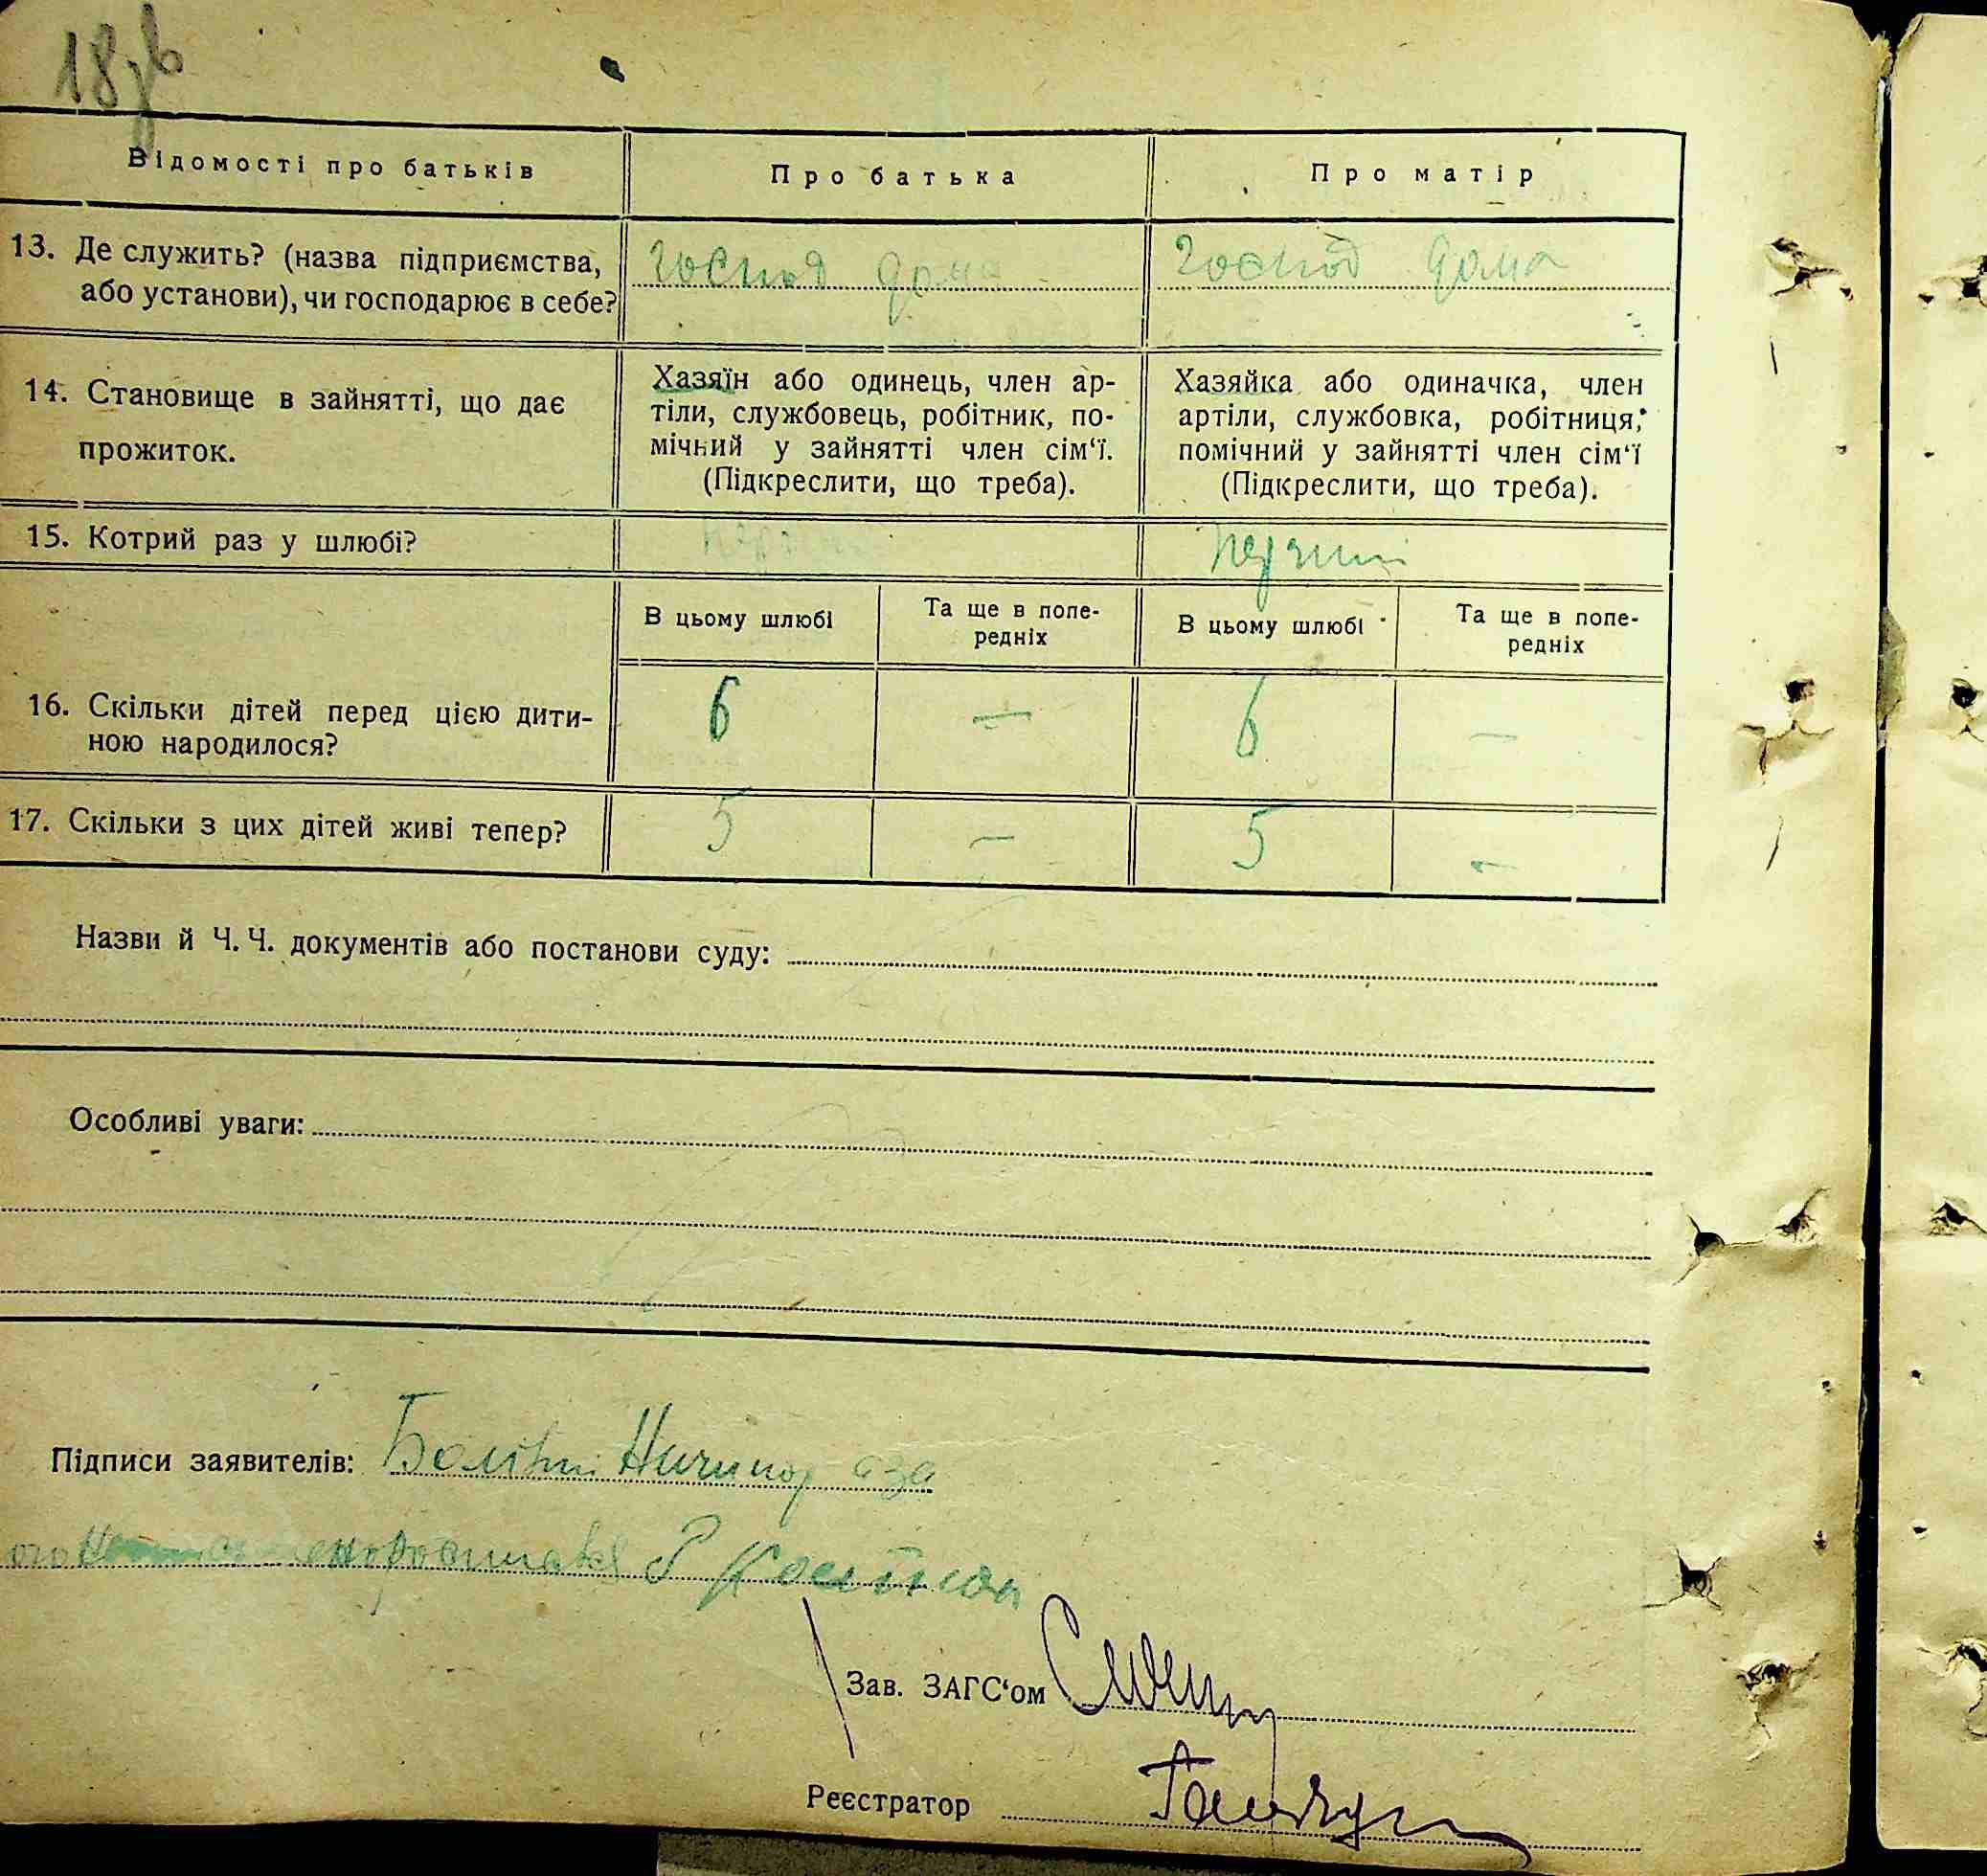 18
Відомості про батьків
Про батька
Про матір
13. Де служить? (назва підприємства,
або установи), чи господарює в себе?
господ дома
господ дома
14. Становище в зайнятті, що дає
прожиток.
Хазяїн або одинець, член ар-
тіли, службовець, робітник, по-
мічний у зайнятті член сім‘ї.
(Підкреслити, що треба).
Хазяйка або одиначка, член
артіли, службовка, робітниця,
помічний у зайнятті член сім‘ї
(Підкреслити, що треба).
15. Котрий раз у шлюбі?
В цьому шлюбі
Та ще в попе-
редніх
В цьому шлюбі
Та ще в попе-
редніх
16. Скільки дітей перед цією дити-
ною народилося?
6
—
6
—
17. Скільки з цих дітей живі тепер?
5
—
5
—
Назви й Ч. Ч. документів або постанови суду:
Особливі уваги:
Підписи заявителів: Ничипор аза
Зав. ЗАГС‘ом
Реєстратор